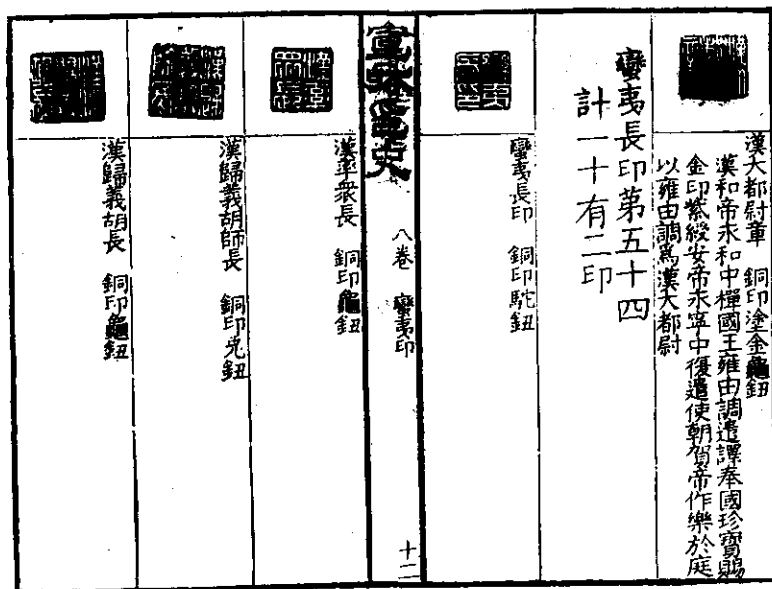 漢大都尉章　銅印塗金龜鈕
漢和帝永和中橝國王雍由調遣譯奉國珍寶賜
金印紫綬安帝永寧中復遣使朝賀帝作樂於庭
以雍由調爲漢大都尉
蠻夷長印第五十四
計一十有二印
蠻夷長印　銅印駝鈕
八卷　蠻夷印
十二
漢率衆長　銅印龜鈕
漢歸義胡師長　銅印兎鈕
漢歸義胡長　銅印龜鈕